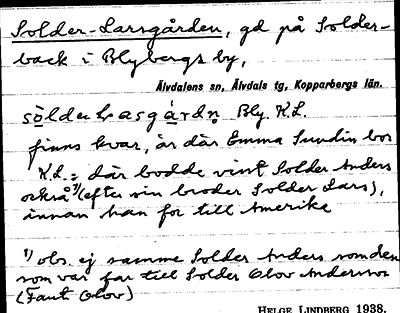 Solder-Larsgården, gd på Solder-
back i Blybergs by,
Älvdalens sn, Älvdals tg, Kopparbergs län.
sö̀lder Lasgá̀rdn̥ Bly. K.L.
finns kvar, är där Emma Sundin bor
K.L.: där bodde vint Solder Anders
också 1) (efter sin broder Solder Lars),
innan han for till Amerika
1) obs. ej samme Solder Anders som den
som var far till Solder Olov Andersson
(Faut Olov)
HELGE LINDBERG 1938.